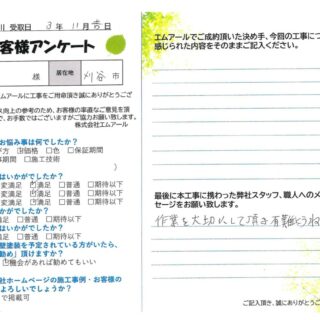 受取日 3年 11月 日
客様アンケート
様 居在地 刈谷市
エムアールに工事をご用命頂き誠にありがとうござ
ス向上の参考のため、お客様の率直なご意見を頂
で、お手数ではございますがご協力お願い致します。
株式会社エムアール
お悩み事は何でしたか?
方 ☑価格 □色 □保証期間
事期間 □施工技術
はいかがでしたか?
変満足 ☑満足 □普通 □期待以下
はいかがでしたか?
変満足 ☑満足 □普通 □期待以下
はいかがでしたか?
変満足 ☑満足 □普通 □期待以下
はいかがでしたか?
変満足 ☑満足 □普通 □期待以下
壁塗装を予定されている方がいたら、
勧め」頂けますか?
☑機会があれば勧めてもいい
社ホームページの施工事例・お客様の
よろしいでしょうか?
で掲載可
エムアールでご成約頂いた決め手、今回の工事につ
感じられた内容をそのままご記入ください。
最後に本工事に携わった弊社スタッフ、職人へのメ
セージをお願い致します。
作業を大切にして頂き有難とうね
ご記入頂き、誠にありがとうござ